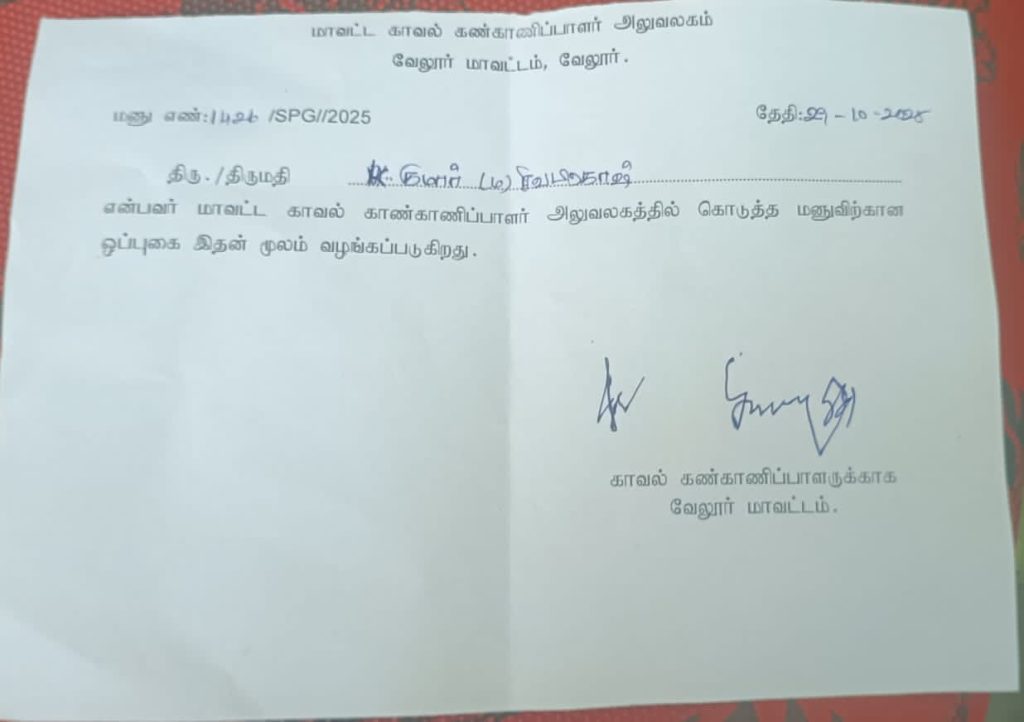 மாவட்ட காவல் கண்காணிப்பாளர் அலுவலகம்
வேலூர் மாவட்டம், வேலூர்.
மனு எண்:1426 /SPG//2025 தேதி:29-10-2025
திரு./திருமதி குமார் (ம)
என்பவர் மாவட்ட காவல் காண்காணிப்பாளர் அலுவலகத்தில் கொடுத்த மனுவிற்கான
ஒப்புகை இதன் மூலம் வழங்கப்படுகிறது.
காவல் கண்காணிப்பாளருக்காக
வேலூர் மாவட்டம்.